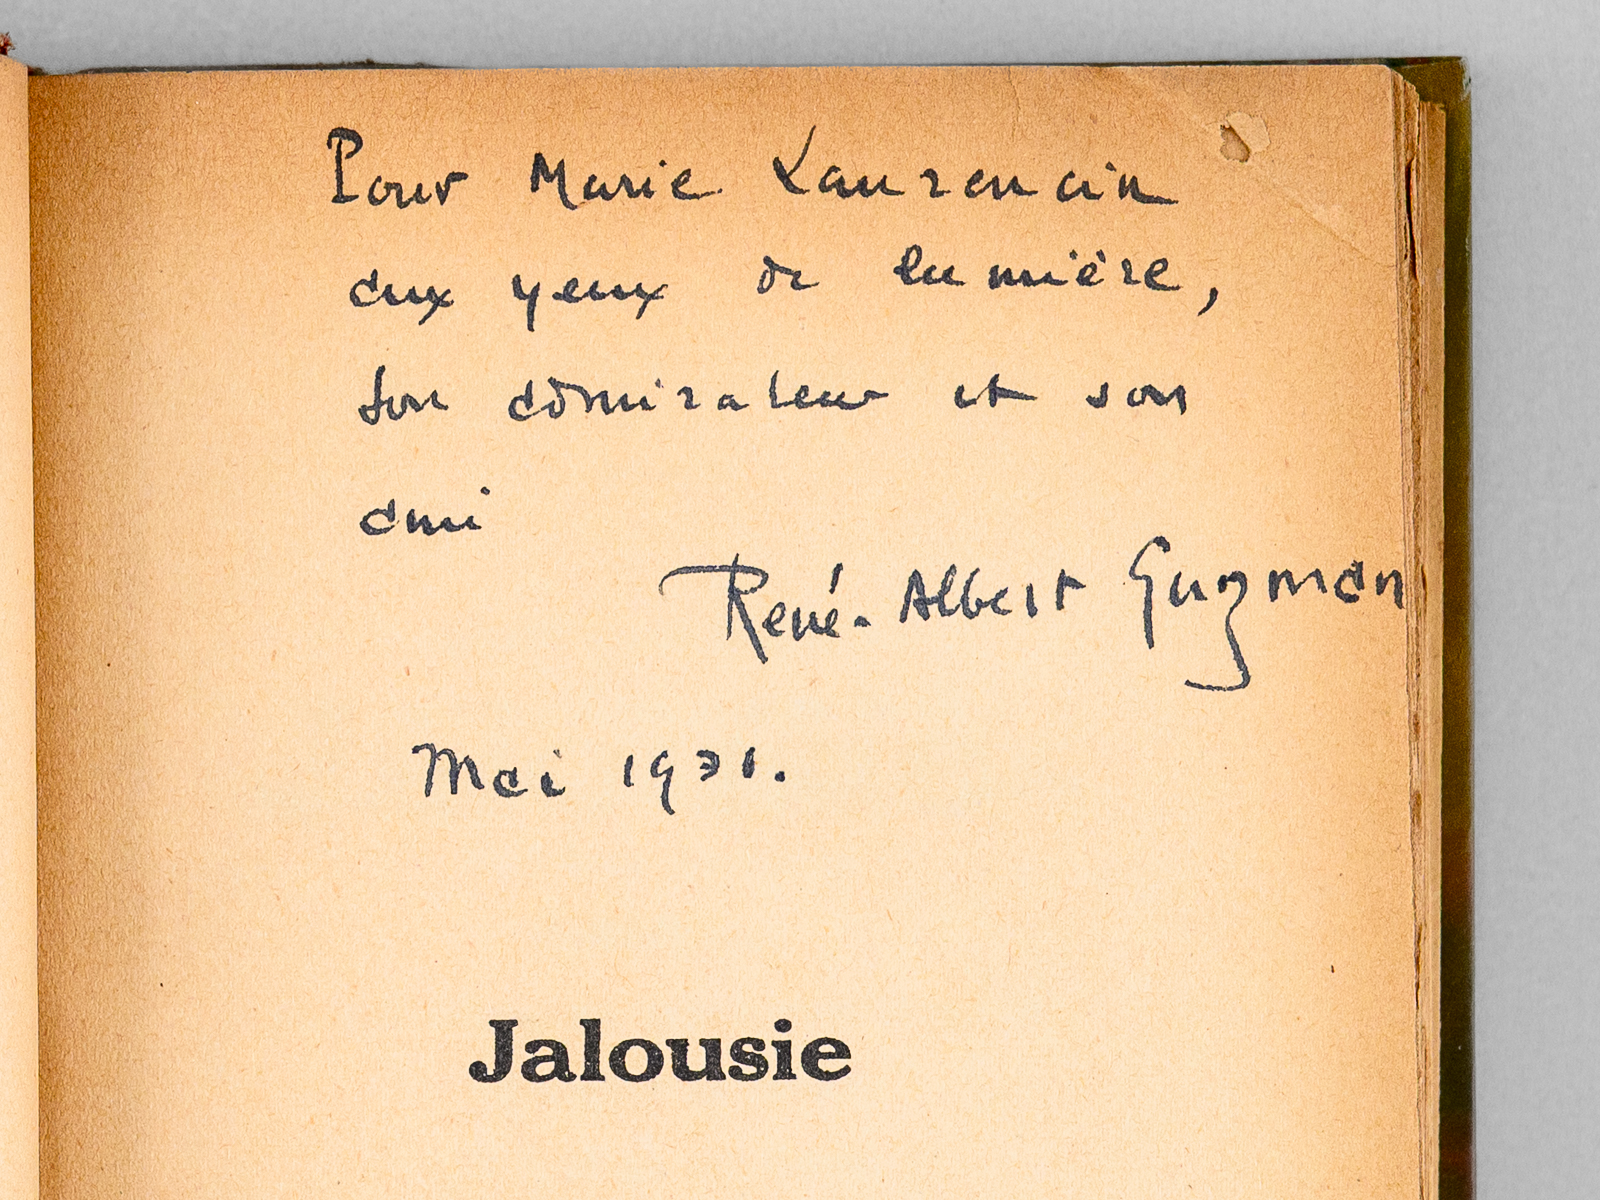 Pour Marie Laurencin
aux yeux de lumière,
son admirateur et son
ami
René-Albert Guzman
Mai 1931.
Jalousie